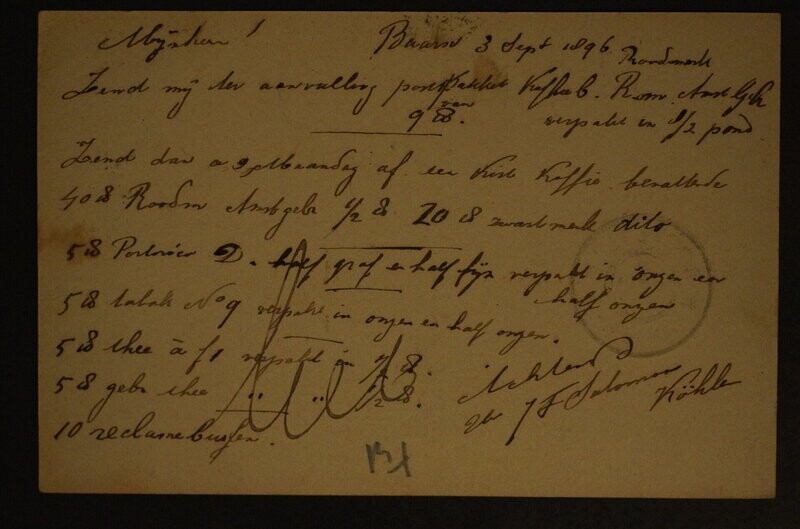 Mijnheer! Baarn 3 Sept 1896.
Roodmerk
Zend mij ter aanvulling postpakket Koffieb. Rom. Amst Gebr
van
9 ℔. verpakt in 1/2 pond
Zend dan a s Maandag af een kist Koffie bevattende
40 ℔ Roodm Amst gebr 1/2 ℔ 20 ℔ zwartmerk dito
5 ℔ Portorico D. half graf en half fijn verpakt in onzen en
half onzen
5 ℔ tabak No 9 verpakt in onzen en half onzen.
5 ℔ thee à f1 verpakt in 1/2 ℔.
5 ℔ gebr thee " " 1/2 ℔.
10 reclamebussen.
Achtend
J F Salomon
Köhler